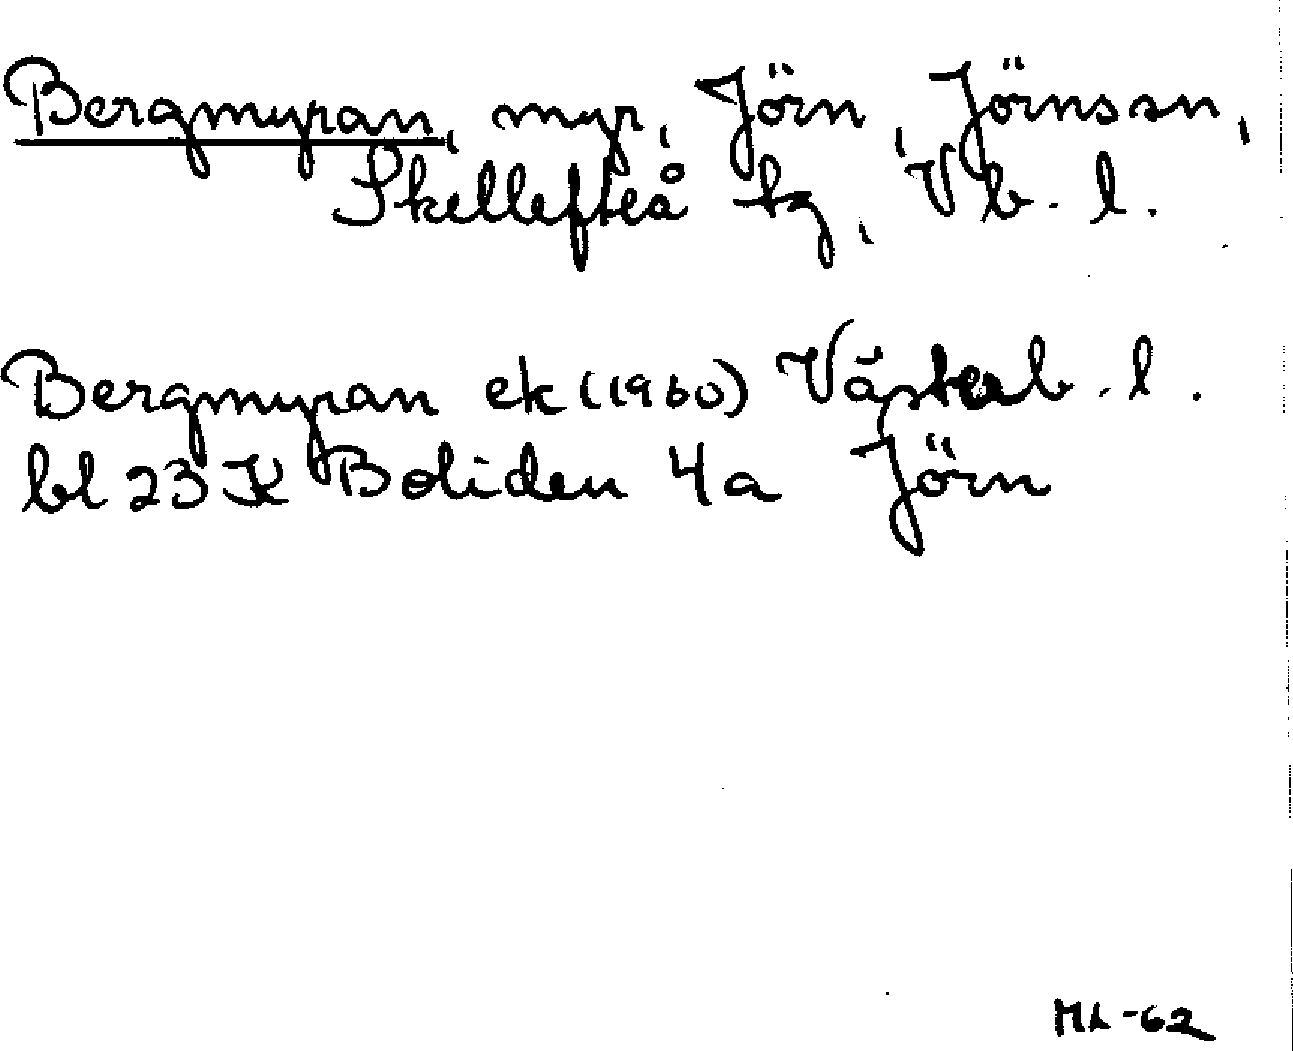 Bergmyran, myr, Jörn, Jörns sn,
Skellefteå tg, Vb. l.
Bergmyran ek (1960) Västerb. l.
bl 23 K Boliden 4a Jörn
ML -62